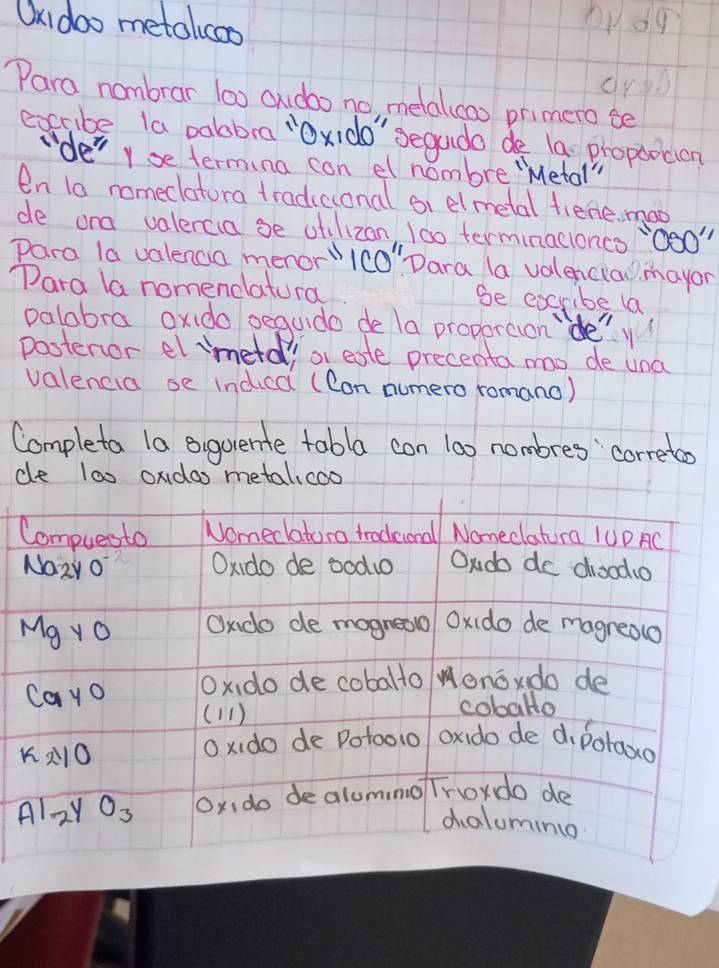 Oxidos metalicos
Para nombrar los oxidos no metalicos primero se
escribe la palabra "Oxido" seguido de la proposicion
"de" y se termina con el nombre "Metal"
en la nomeclatura tradicional si el metal tiene mas
de una valencia se utilizan las terminaciones "OSO"
Para la valencia menor "ICO" Para la valencia mayor
Para la nomenclatura se escribe la
palabra oxido seguido de la proporcion "de" y
posterior el "metal" si este precenta mas de una
valencia se indica (Con numero romano)
Completa la siguiente tabla con los nombres corretos
de los oxidos metalicos
Compuesto Nomeclatura tradicional Nomeclatura IUPAC
Na2 y O-2 Oxido de sodio Oxido de disodio
Mg y O Oxido de magnesio Oxido de magnesio
Ca y O Oxido de cobalto (II) Monóxido de cobalto
K2 y O Oxido de Potasio oxido de dipotasio
Al2 y O3 Oxido de aluminio Trioxido de dialuminio.